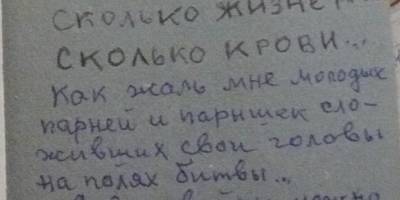 сколько жизне
сколько крови...
Как жаль мне молодых
парней и парнишек сло-
живших свои головы
на полях битвы...